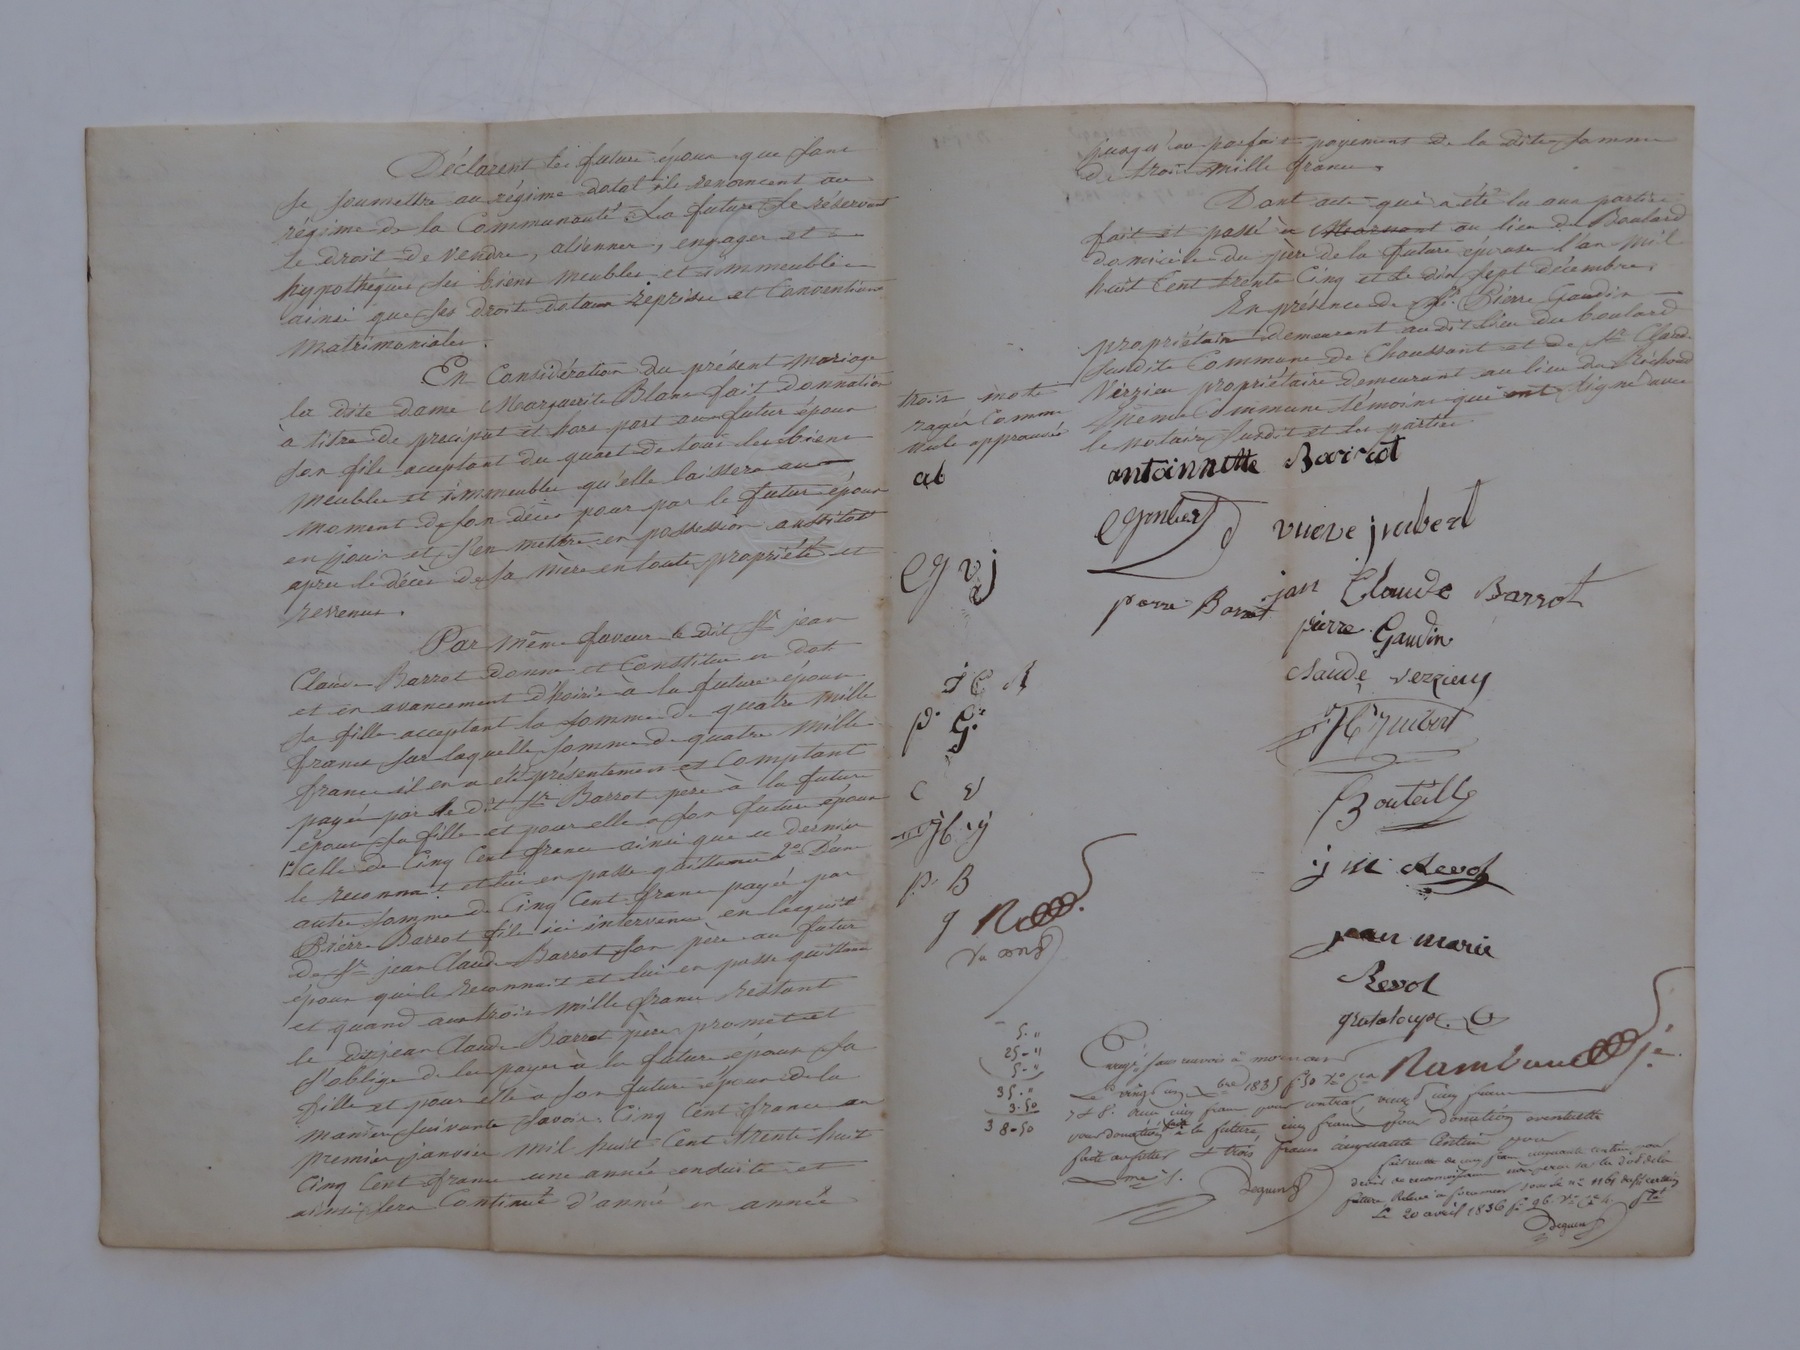 Déclarent les futurs époux que sans
se soumettre au régime dotal ils renoncent au
régime de la Communauté. La future se réservant
le droit de vendre, aliénner, engager et
hypothéquer ses biens meubles et immeubles
ainsi que ses droits dotaux reprises et Conventions
matrimoniales.
En Considération du présent mariage
la dite dame Marguerite Blanc fait donnation
à titre de preciput et hors part au futur époux
son fils acceptant du quart de tous les biens
meubles et immeubles qu'elle laissera au
moment de son décès pour par le futur époux
en jouir et s'en mettre en possession aussitôt
après le décès de sa mère en toute propriété et
revenus.
Par même faveur le dit Sr jean
Claude Barrot donne et Constitue en dot
et en avancement d'hoirie à la future épouse
sa fille acceptant la somme de quatre mille
francs sur laquelle somme de quatre mille
francs il en a été présentement et Comptant
payé par le dit Sr Barrot père à la future
épouse sa fille et pour elle à son futur époux
1° Celle de Cinq Cent francs ainsi que ce dernier
le reconnait et lui en passe quittance 2° D'une
autre somme de Cinq Cent francs payée par
Pierre Barrot fils ici intervenu en l'acquit
de Sr jean Claude Barrot son père au futur
époux qui le reconnait et lui en passe quittance
et quand aux trois mille francs restant
le dit jean Claude Barrot père promet et
s'oblige de les payer à la future épouse sa
fille et pour elle à son futur époux de la
manière suivante savoir: Cinq Cent francs au
premier janvier mil huit Cent trente huit
Cinq Cent francs une année ensuite et
ainsi sera Continué d'année en année
jusqu'au parfait payement de la dite somme
de trois mille francs.
Dont acte qui a été lu aux parties
fait et passé à au lieu du Boulard
domicile du père de la future épouse l'an mil
huit Cent trente Cinq et le dix sept décembre.
En présence de Sr Pierre Gaudin
propriétaire demeurant audit lieu du boulard
susdite Commune de Chaussant et de Sr Claude
Verzieu propriétaire demeurant au lieu du Richoud
même Commune témoins qui ont signé avec
le notaire susdit et les parties
trois mots
rayés Comme
nuls approuvés
ab
antoinnette Barrot
vueve jmbert
e g v j
pierre Barrot
jan Claude Barrot
pierre Gaudin
claude verzieu
J C B
p. G.
c v
p. B
Bouteille
j m Revol
g R
jean marie
Revol
Rambaud
5."
25-"
5-"
35."
3-50
38-50
Le vingt cinq Xbre 1835 fo 50
7 & 8. Reçu cinq francs pour contrat,
pour donation à la future, cinq francs pour donation éventuelle
faite au futur & trois francs cinquante centimes pour
future
Le 20 avril 1836